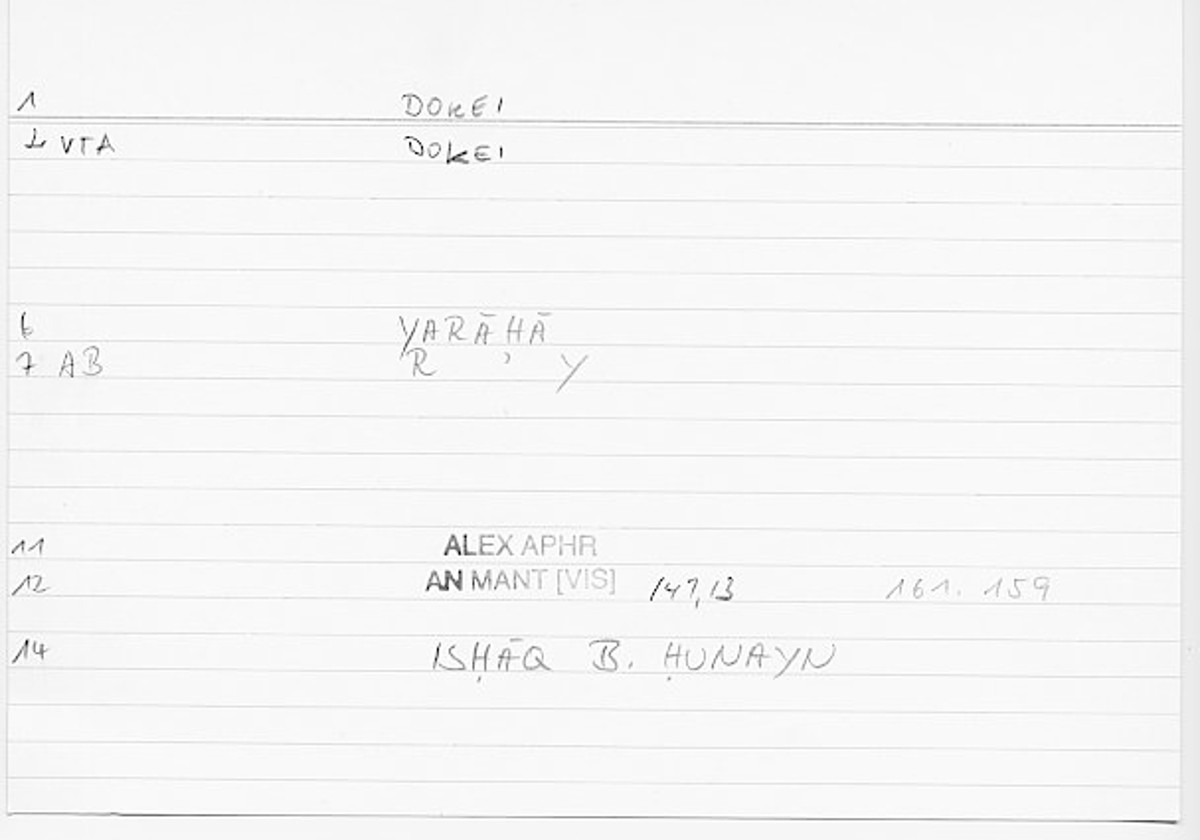 1 DOKEI
2 VTA DOKEI
6 YARĀHĀ
7 AB R ʾ Y
11 ALEX APHR
12 AN MANT [VIS] 147,13 161. 159
14 ISḤĀQ B. ḤUNAYN